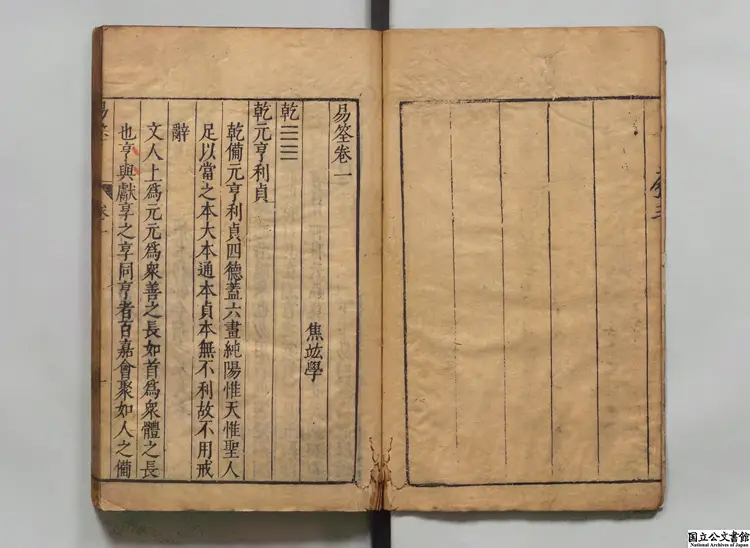 易筌卷一
焦竑學
乾䷀
乾元亨利貞
乾備元亨利貞四德蓋六畫純陽惟天惟聖人
足以當之本大本通本貞本無不利故不用戒
辭
文人上爲元元爲衆善之長如首爲衆體之長
也亨與獻享之享同亨者百嘉會聚如人之備
易筌
卷一
国立公文書館
National Archives of Japan